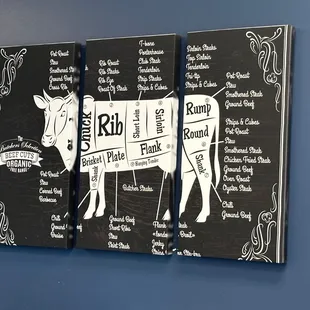 Pot Roast
Stew
Smothered Steak
Ground Beef
Cross Rib
The
Butchers Selection
BEEF CUTS
ORGANIC
FREE RANGE
Pot Roast
Stew
Corned Beef
Barbecue
Chili
Ground Beef
Braise
Rib Roast
Rib Steaks
Rib Eye
Roast
Steak
T-bone
Porterhouse
Club Steak
Tenderloin
Strip Steaks
Strips & Cubes
Chuck
Rib
Short Loin
Sirloin
Brisket
Plate
Flank
Shank
Hanging Tender
Butcher Steaks
Ground Beef
Short Ribs
Stew
Skirt Steak
Flank Steak
Jerky
Sirloin Steaks
Top Sirloin
Tenderloin
Tri-Tip
Strips & Cubes
Pot Roast
Stew
Smothered Steak
Ground Beef
Rump
Round
Shank
Strips & Cubes
Pot Roast
Stew
Smothered Steak
Chicken Fried Steak
Ground Beef
Oven Roast
Oyster Steak
Chili
Ground Beef
Stew